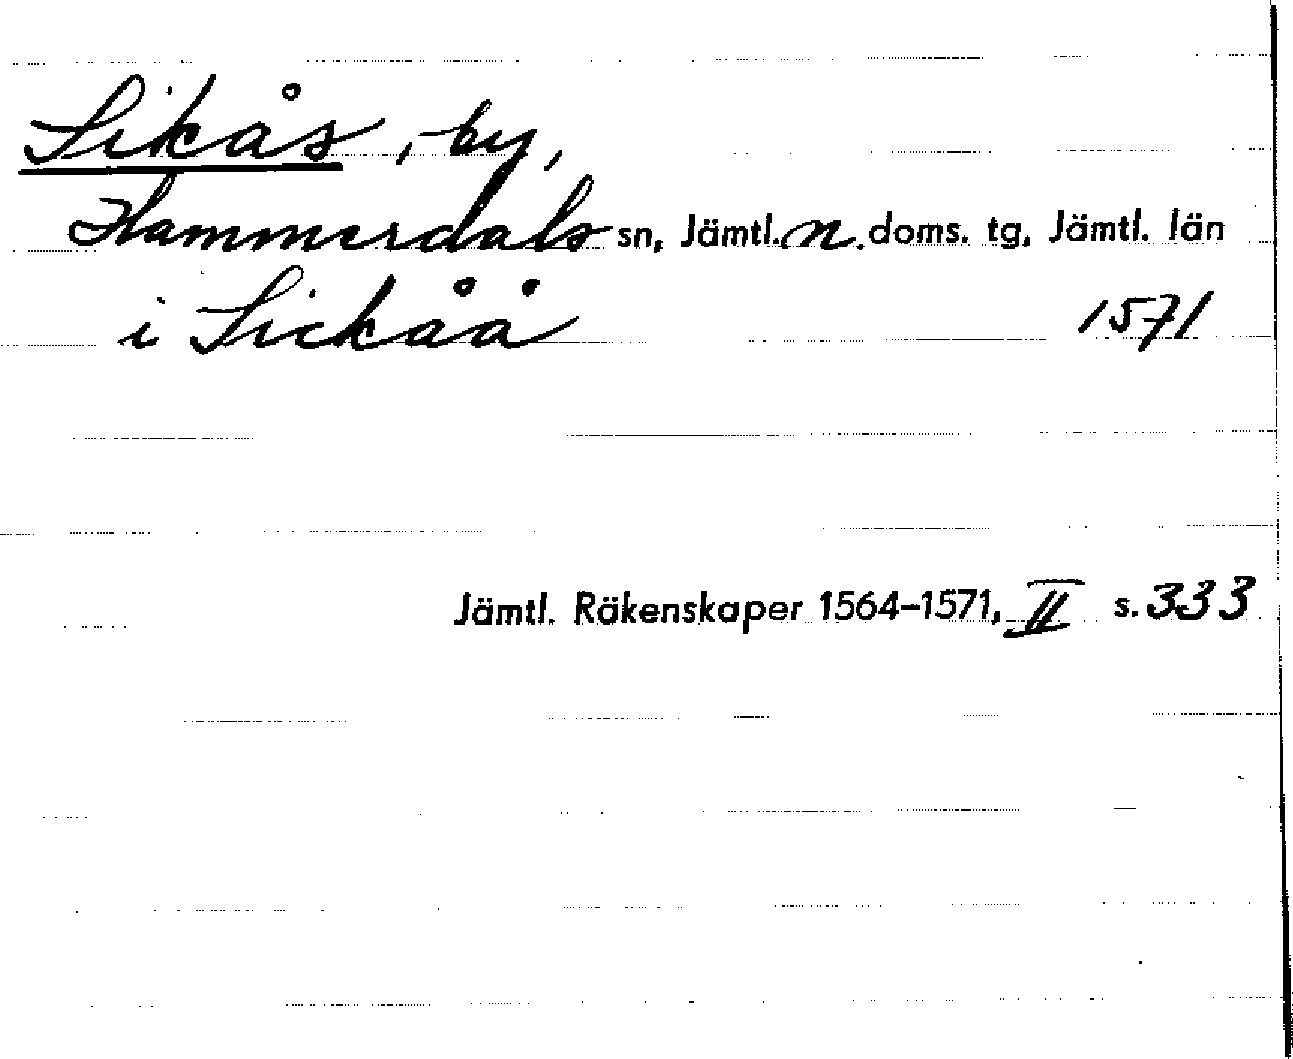 Sikås, by,
Hammerdals sn, Jämtl. n. doms. tg, Jämtl. län
i Sickåå 1571
Jämtl. Räkenskaper 1564–1571, II s. 333